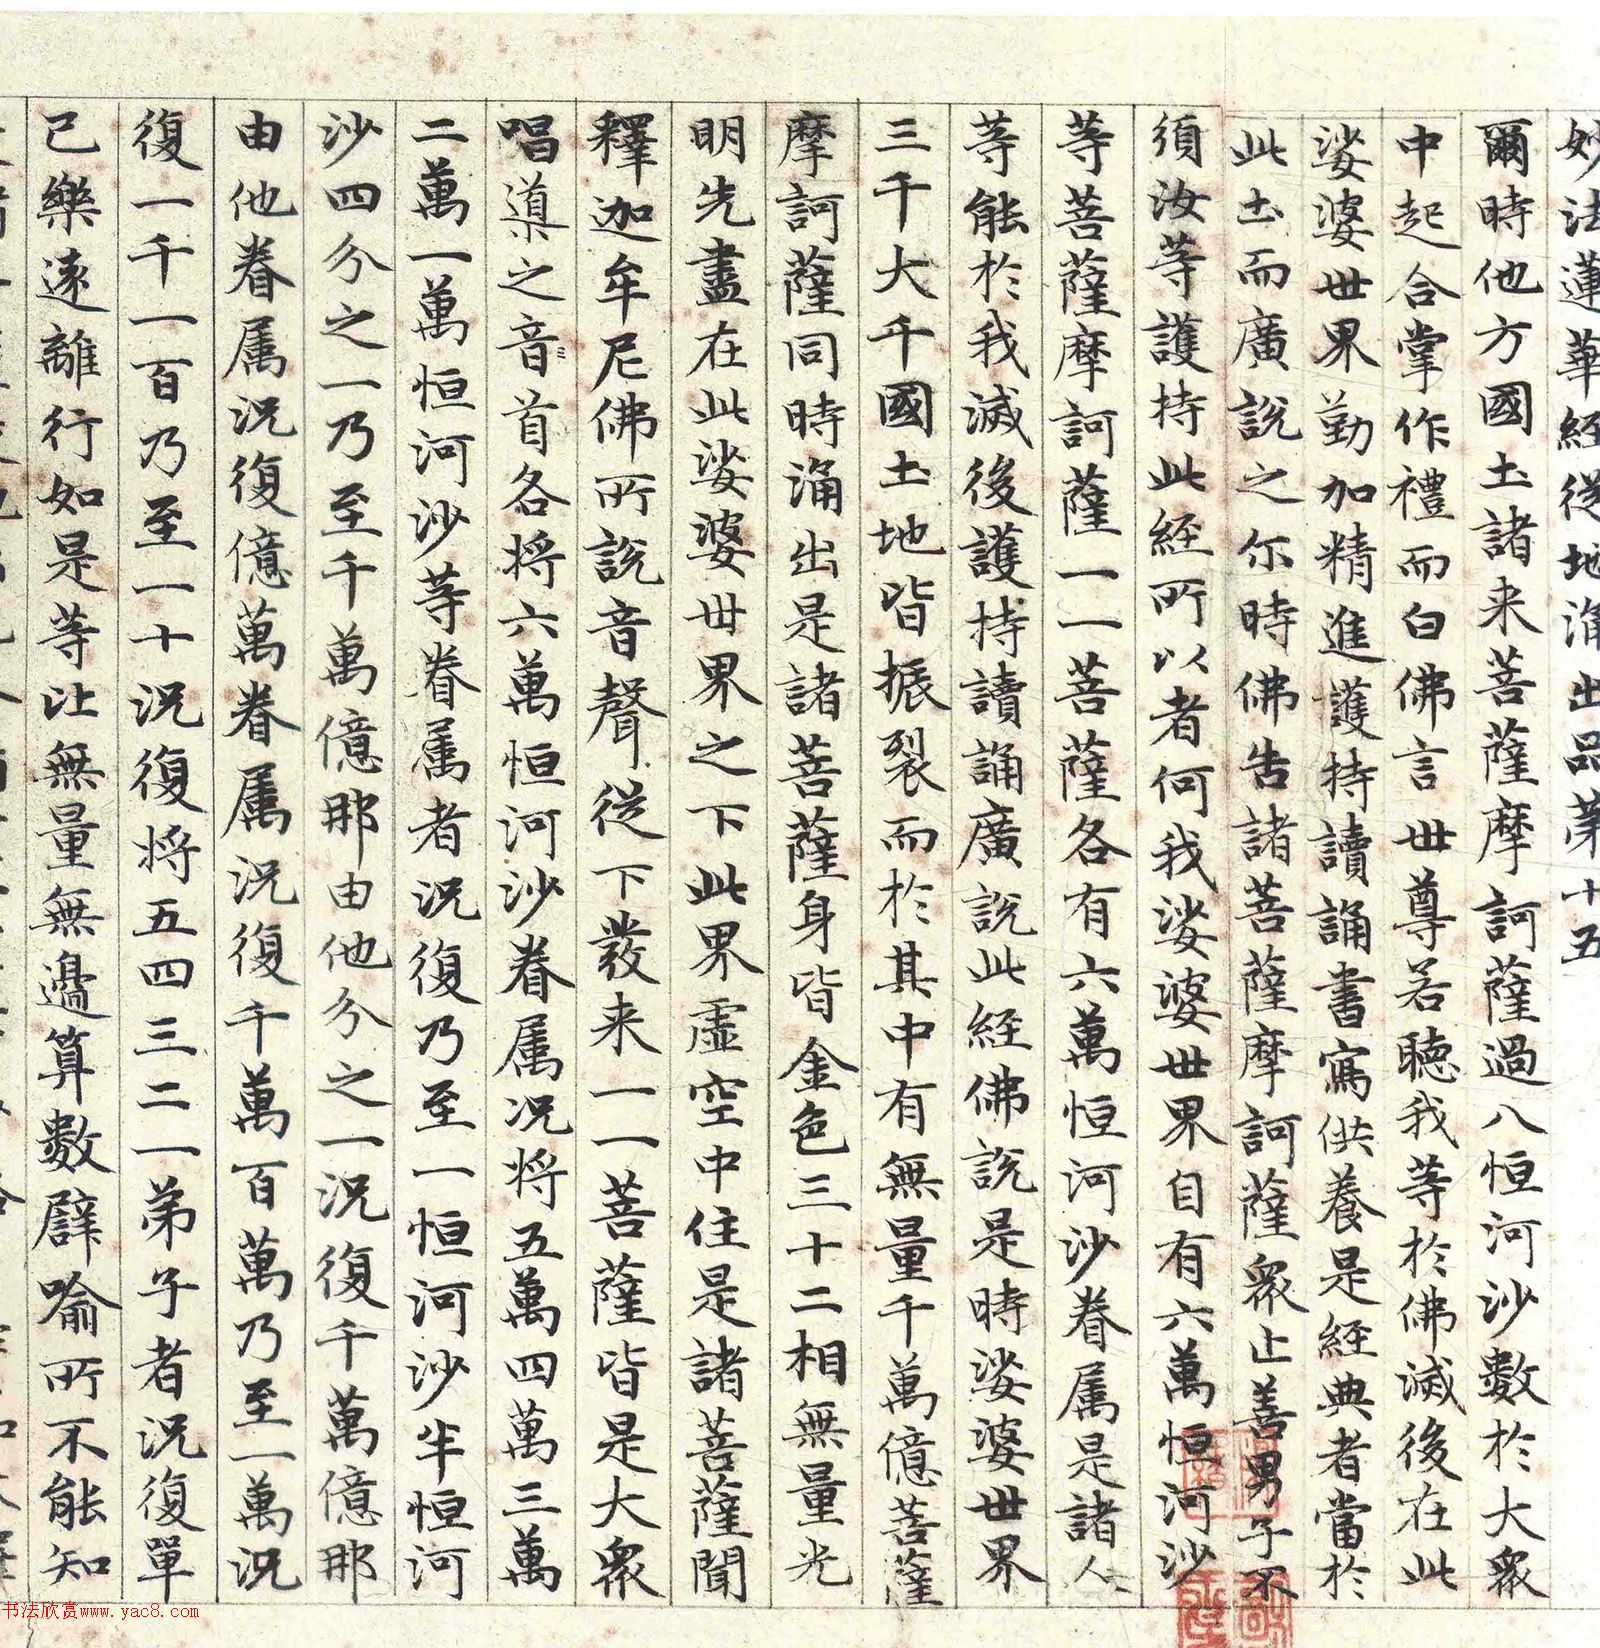 妙法蓮華經從地涌出品第十五
爾時他方國土諸来菩薩摩訶薩過八恒河沙數於大衆
中起合掌作禮而白佛言世尊若聽我等於佛滅後在此
娑婆世界勤加精進護持讀誦書寫供養是經典者當於
此土而廣說之尒時佛告諸菩薩摩訶薩衆止善男子不
須汝等護持此經所以者何我娑婆世界自有六萬恒河沙
等菩薩摩訶薩一一菩薩各有六萬恒河沙眷属是諸人
等能於我滅後護持讀誦廣說此經佛說是時娑婆世界
三千大千國土地皆振裂而於其中有無量千萬億菩薩
摩訶薩同時涌出是諸菩薩身皆金色三十二相無量光
明先盡在此娑婆世界之下此界虛空中住是諸菩薩聞
釋迦牟尼佛所說音聲從下發来一一菩薩皆是大衆
唱導之音首各将六萬恒河沙眷属况将五萬四萬三萬
二萬一萬恒河沙等眷属者況復乃至一恒河沙半恒河
沙四分之一乃至千萬億那由他分之一況復千萬億那
由他眷属況復億萬眷属況復千萬百萬乃至一萬況
復一千一百乃至一十況復将五四三二一弟子者況復單
已樂遠離行如是等比無量無邊算數譬喻所不能知
书法欣赏www.yac8.com